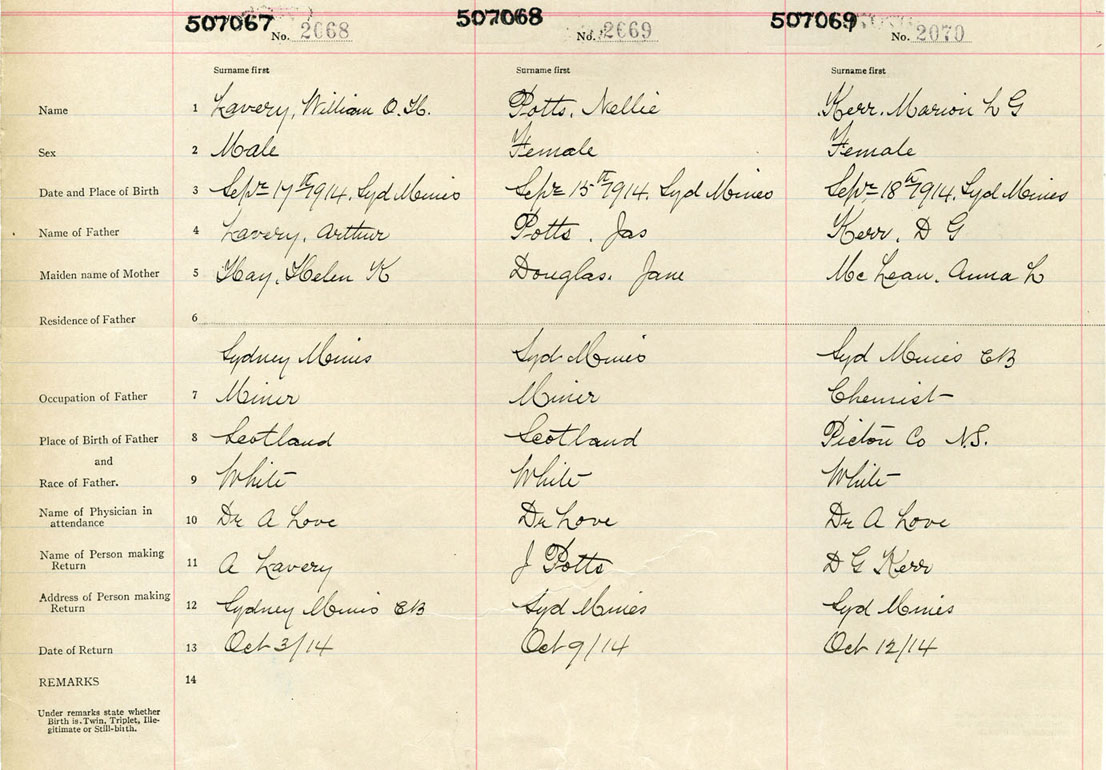 507067 No. 2668 507068 No. 2669 507069 No. 2070
Surname first Surname first Surname first
Name 1 Lavery, William O. H. Potts, Nellie Kerr, Marion L G
Sex 2 Male Female Female
Date and Place of Birth 3 Sepr 17th/914. Syd Mines Sepr 15th/914. Syd Mines Sepr 18th/914. Syd Mines
Name of Father 4 Lavery, Arthur Potts, Jas Kerr, D G
Maiden name of Mother 5 Hay, Helen K Douglas, Jane McLean, Anna L
Residence of Father 6
Sydney Mines Syd Mines Syd Mines CB
Occupation of Father 7 Miner Miner Chemist
Place of Birth of Father 8 Scotland Scotland Pictou Co N.S.
and
Race of Father. 9 White White White
Name of Physician in
attendance 10 Dr A Love Dr Love Dr A Love
Name of Person making
Return 11 A Lavery J Potts D G Kerr
Address of Person making
Return 12 Sydney Mines CB Syd Mines Syd Mines
Date of Return 13 Oct 3/14 Oct 9/14 Oct 12/14
REMARKS 14
Under remarks state whether
Birth is Twin, Triplet, Ille-
gitimate or Still-birth.